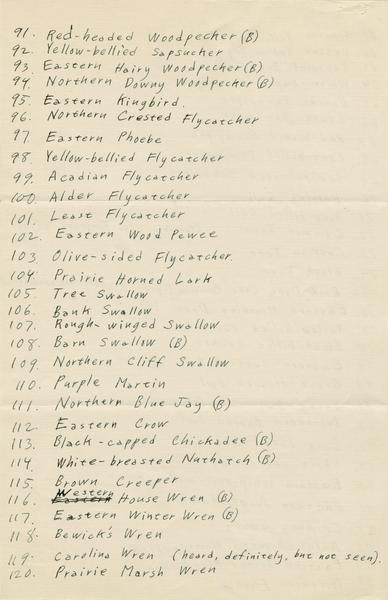 91. Red-headed Woodpecker (B)
92. Yellow-bellied Sapsucker
93. Eastern Hairy Woodpecker (B)
94. Northern Downy Woodpecker (B)
95. Eastern Kingbird.
96. Northern Crested Flycatcher
97. Eastern Phoebe
98. Yellow-bellied Flycatcher
99. Acadian Flycatcher
100. Alder Flycatcher
101. Least Flycatcher
102. Eastern Wood Pewee
103. Olive-sided Flycatcher.
104. Prairie Horned Lark
105. Tree Swallow
106. Bank Swallow
107. Rough-winged Swallow
108. Barn Swallow (B)
109. Northern Cliff Swallow
110. Purple Martin
111. Northern Blue Jay (B)
112. Eastern Crow
113. Black-capped Chickadee (B)
114. White-breasted Nuthatch (B)
115. Brown Creeper
Western
116. Eastern House Wren (B)
117. Eastern Winter Wren (B)
118. Bewick's Wren
119. Carolina Wren (heard, definitely, but not seen).
120. Prairie Marsh Wren